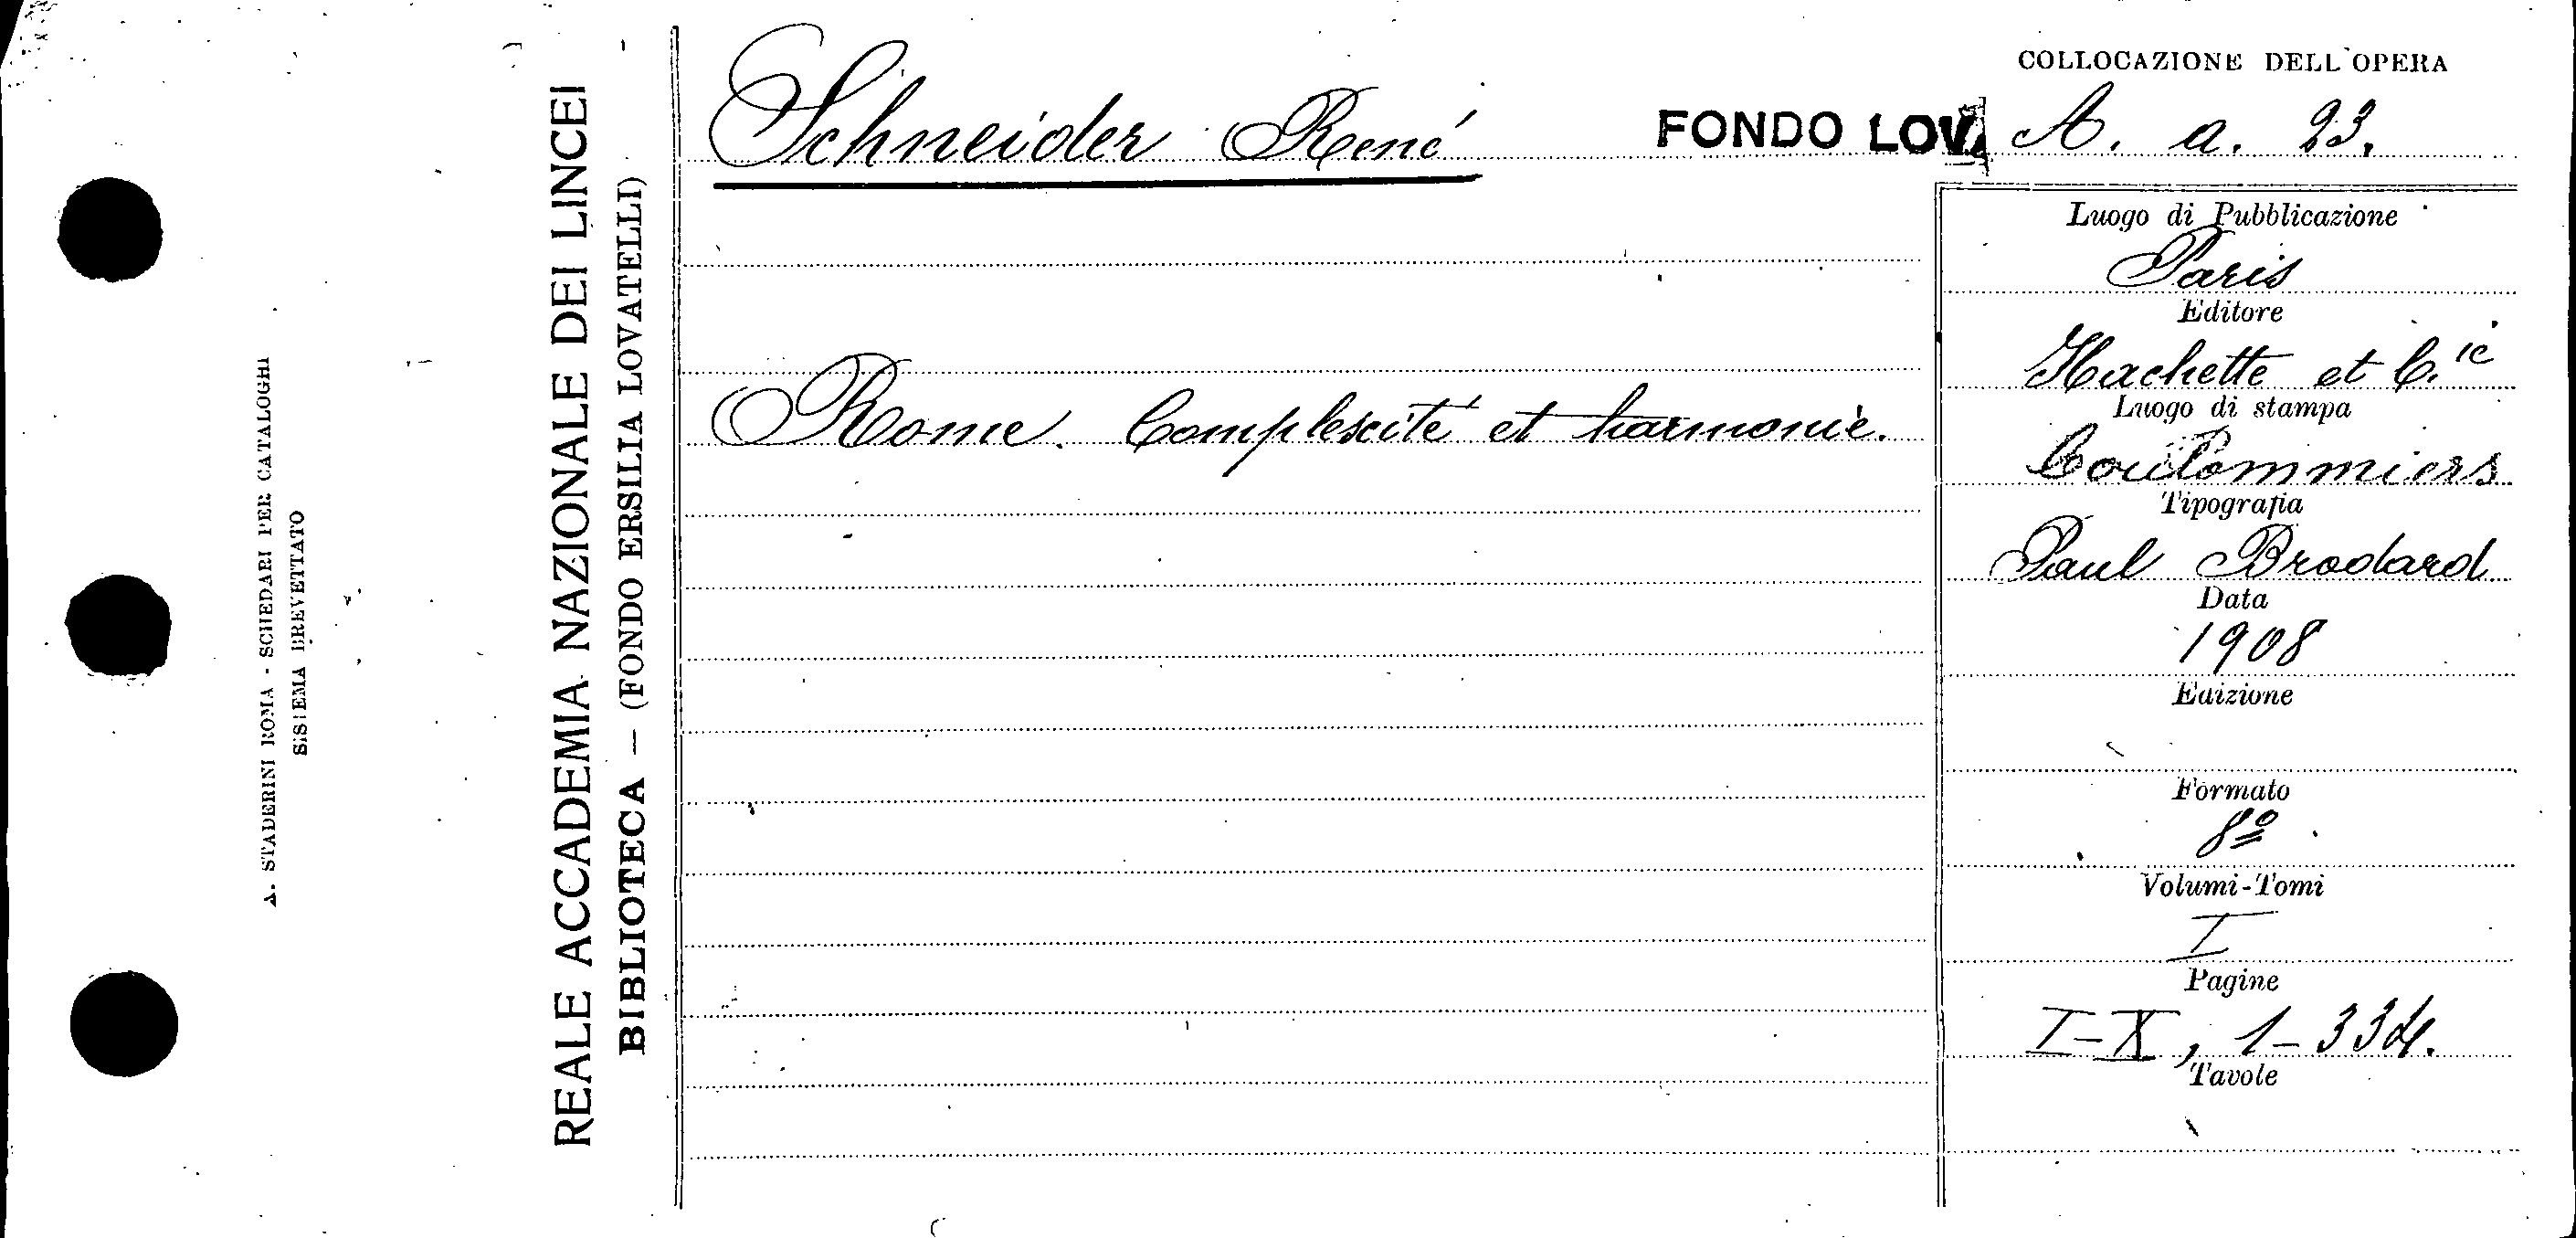 A. STADERINI ROMA - SCHEDARI PER CATALOGHI
SISTEMA BREVETTATO
REALE ACCADEMIA NAZIONALE DEI LINCEI
BIBLIOTECA — (FONDO ERSILIA LOVATELLI)
Schneider René
Rome. Complexité et harmonie.
COLLOCAZIONE DELL'OPERA
FONDO LOV. A. a. 23.
Luogo di Pubblicazione
Paris
Editore
Hachette et C.ie
Luogo di stampa
Coulommiers
Tipografia
Paul Brodard
Data
1908
Edizione
Formato
8º
Volumi-Tomi
I
Pagine
I-X, 1-334.
Tavole